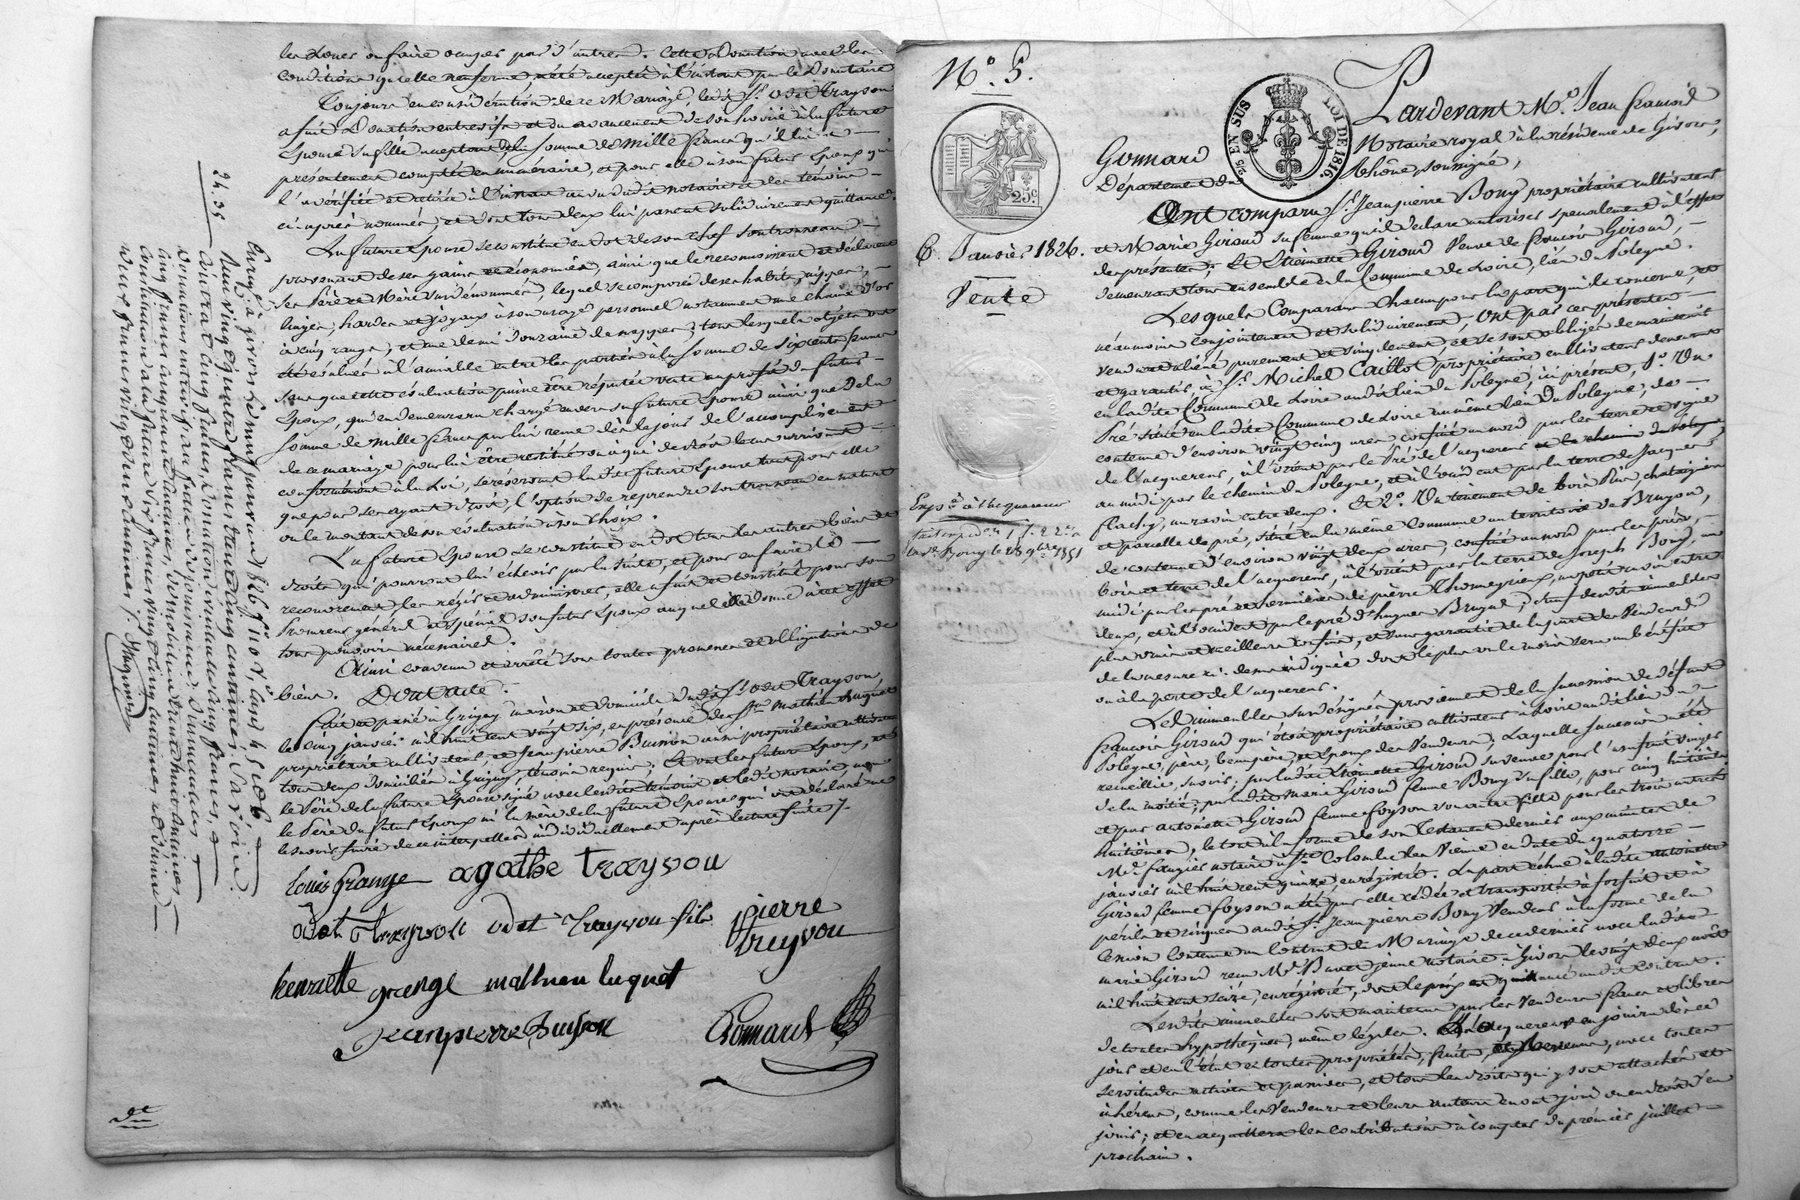 les louer en faire usages par d'autres. Cette donation avec les
conditions qu'elle renferme a été acceptée à l'instant par le Donataire
Toujours en considération de ce Mariage, ledit Sr. Odet Trayvou
a fait Donation entrevifs et en avancement de son hoirie à la future
Epouse sa fille acceptant, la somme de Mille francs qu'il lui a
présentement comptée en numéraire, et pour elle à son futur Epoux qui
l'a vérifiée et retirée à l'instant au vu dudit notaire et des témoins
ci-après nommés, et dont tous deux lui passent solidairement quittance.
La future Epouse se constitue en dot de son chef son trousseau
provenant de ses gains et économies, ainsi que le reconnoissent et déclarent
ses Père et Mère susdénommés, lequel se compose de ses habits, nippes,
linges, hardes et joyaux à son usage personnel notamment une chaîne d'or
à cinq rangs, et une demi douzaine de nappes; tous lesquels objets ont
été évalués à l'amiable entre les parties à la somme de six cents francs
sans que cette évaluation puisse être réputée vente au profit du futur
Epoux, qui en demeurera chargé envers sa future Epouse ainsi que de la
somme de mille francs par lui reçue dès le jour de l'accomplissement
de ce mariage pour lui être restitué ou à qui de droit le cas arrivant
conformément à la Loi, se réservant ladite future Epouse tant pour elle
que pour ses ayant droit, l'option de reprendre son trousseau en nature
ou le montant de son évaluation à son choix.
La future Epouse se constitue en dot tous les autres biens et
droits qui pourront lui échoir par la suite, et pour en faire le
recouvrement les régir et administrer, elle a fait et constitué pour son
Procureur général et spécial son futur Epoux auquel elle donne à cet effet
tous pouvoirs nécessaires.
Ainsi convenu et arrêté sous toutes promesses et obligations de
biens. Dont acte.
Fait et passé à Grigny maison et domicile dudit Sr. Odet Trayvou
le cinq janvier mil huit cent vingt six, en présence des Srs. Mathieu Luquet
propriétaire cultivateur, et Jean pierre Buisson aussi propriétaire cultivateur
tous deux domiciliés à Grigny, témoins requis; Et ont les futurs Epoux, et
le Père de la future Epouse signé avec lesdits témoins et ledit notaire non
le Père du futur Epoux ni la mère de la future Epouse qui ont déclaré ne
le savoir faire de ce interpellés individuellement après lecture faite /.
Louis Grange agathe Trayvou
odet Trayvou odet Trayvou fils pierre
Trayvou
henriette grange mathieu luquet
jeanpierre Buisson Gonnard
Enrg. à givors le neuf janvier 1826 f° 110 V° Cases 4 5 et 6
Reçu vingt quatre francs trente cinq centimes, savoir:
24.35
N°. 5.
25 c.
25c. EN SUS
LOI DE 1816.
6. Janvier 1826.
Vente
Expe. à l'acquereur
Pardevant Me. Jean françois
Gonnard Notaire royal à la résidence de Givors,
Département du Rhône, soussigné,
Ont comparu Sr. Jean pierre Bony propriétaire cultivateur
et Marie Giroud sa femme qu'il déclare autoriser spécialement à l'effet
des présentes. Et Etiennette Giroud Veuve de françois Giroud,
demeurant tous ensemble en la Commune de Loire, lieu du Pologne.
Lesquels Comparans chacun pour la part qui le concerne, et
néanmoins conjointement et solidairement, Ont par ces présentes
vendu et aliéné purement et simplement, et se sont obligés de maintenir
et garantir, à Sr. Michel Caillot propriétaire cultivateur demeurant
en ladite Commune de Loire audit lieu du Pologne, ici présent, 1°. Un
Pré situé en ladite Commune de Loire au même lieu du Pologne, de
contenue d'environ vingt cinq ares confiné au nord par les terre et vigne
de l'acquereur, à l'orient par le Pré de l'acquereur et le chemin du Pologne,
au midi par le chemin du Pologne, et à l'occident par la terre de Jacques
flachy, un ravin entre deux. Et 2°. Un tènement de bois Pins, chataigniers
et parcelle de pré, situé en la même Commune au territoire de Bruyon,
de contenue d'environ vingt deux ares, confiné au nord par les prés,
bois et terre de l'acquereur, à l'orient par la terre de Joseph Bony, au
midi par les pré et vernières de pierre Thomegeux, un petit ravin entre
deux, et à l'occident par le pré d'hugues Bruyal; sauf desdits immeubles
plus vrais et meilleurs confins, et sans garantie de la part des Vendeurs
de la mesure ci-dessus indiquée dont le plus ou le moins sera au bénéfice
ou à la perte de l'acquereur.
Lesdits immeubles susdésignés proviennent de la succession de défunt
françois Giroud qui étoit propriétaire cultivateur à Loire audit lieu du
Pologne, père, beaupère, et Epoux des Vendeurs, Laquelle succession a été
recueillie, savoir: par ladite Etiennette Giroud sa veuve pour l'usufruit viager
de la moitié; par ladite Marie Giroud femme Bony sa fille, pour cinq huitièmes
et par antoinette Giroud femme foyson son autre fille pour les trois autres
huitièmes, le tout en la forme de son Testament dernier aux minutes de
Me. faugier notaire à Ste. Colombe lès Vienne en date du quatorze
janvier mil huit cent quinze, enregistré. La part échue à ladite antoinette
Giroud femme foyson a été par elle cédée et transportée à forfait et à
périls et risques audit Sr. Jean pierre Bony Vendeur à la forme de la
Cession contenue au Contrat de Mariage de ce dernier avec ladite
marie Giroud reçu Me. Bavet jeune notaire à Givors le vingt deux août
mil huit cent seize, enregistré, dont le prix est quittancé audit Contrat.
Lesdits immeubles sont maintenus par les Vendeurs francs et libres
de toutes hypothèques, même légales. L'acquereur en jouira dès ce
jour et en l'état en toutes propriétés, fruits, et revenus, avec toutes
servitudes actives et passives, et tous les droits qui y sont attachés et
inhérens, comme les Vendeurs et leurs auteurs en ont joui ou en droit d'en
jouir; et en acquittera les contributions à compter du premier juillet
prochain.